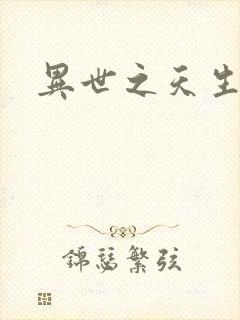 異世之天生
錦瑟繁弦